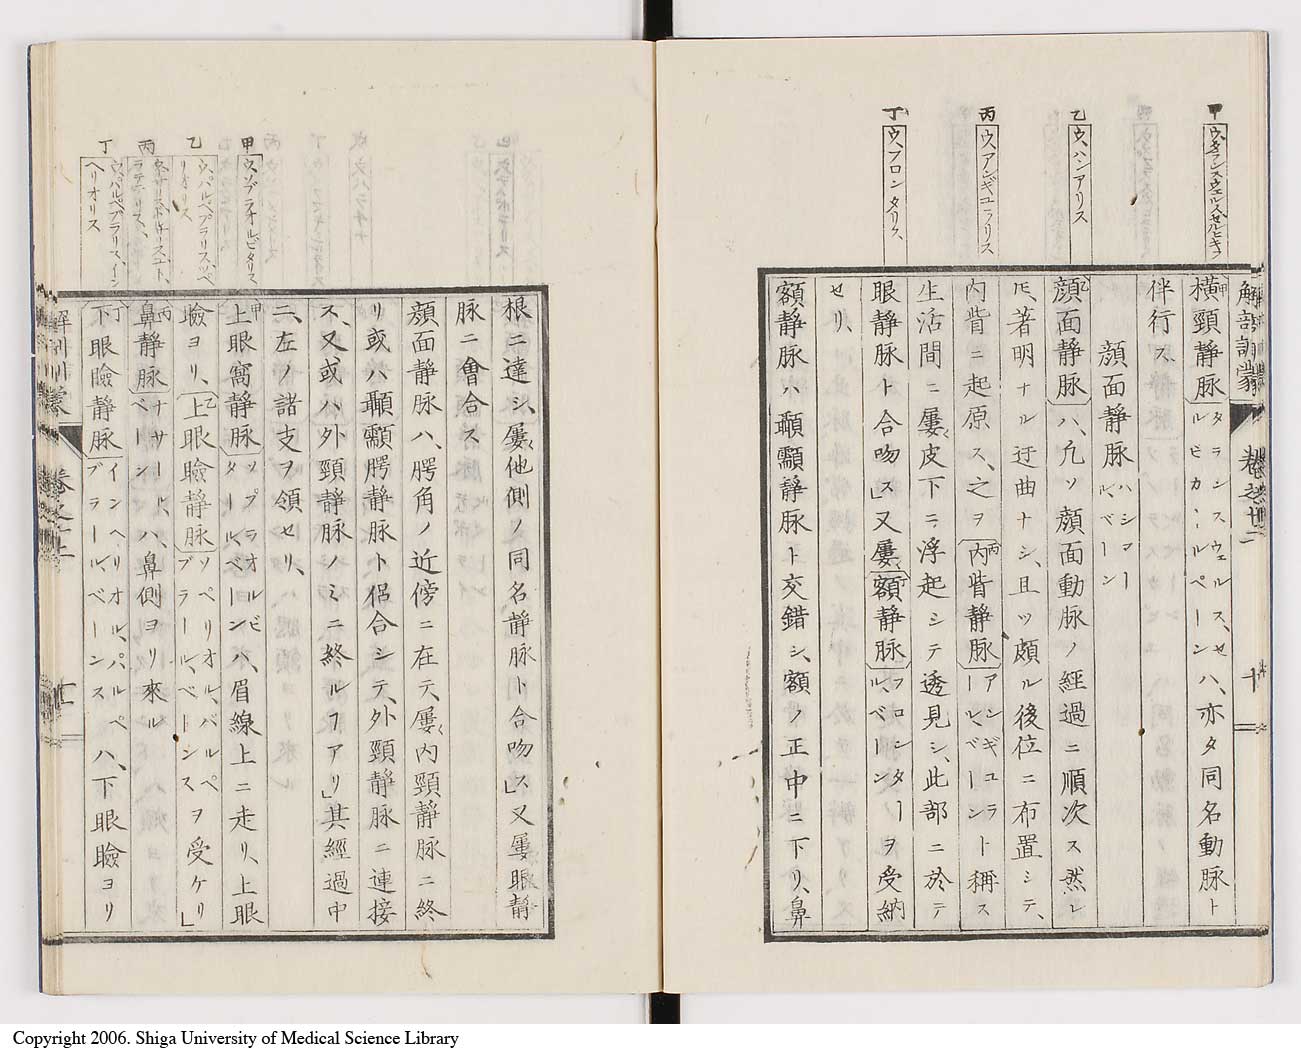 甲 ウ、タランスウェルス、セルヒキフ
乙 ウ、ハシアリス
丙 ウ、アンギュラリス
丁 ウ、フロンタリス、
解剖訓蒙 卷之十二 十
甲横頸靜脉タランスウェルス、セルビカールベーンハ、亦タ同名動脉ト
伴行ス
顔面靜脉ハシアール、ベーン
乙顔面靜脉ハ、凢ソ顔面動脉ノ經過ニ順次ス然レ
𪜈、著明ナル迂曲ナシ、且ツ頗ル後位ニ布置シテ、
内眥ニ起原ス、之ヲ丙内眥靜脉アンギュラールベーント稱ス
生活間ニ屢皮下ニ浮起シテ透見シ、此部ニ於テ
眼靜脉ト合吻ス」又屢丁額靜脉フロンタール、ベーンヲ受納
セリ、
額靜脉ハ顳顬靜脉ト交錯シ、額ノ正中ニ下リ、鼻
甲 ウ、ソプラオルビタリス
乙 ウ、パルペブラリス、ソペリオリス
丙 ラテラリス、
丁 ウ、パルペブラリス、インヘリオリス
根ニ達シ、屢他側ノ同名靜脉ト合吻ス」又屢眼靜
脉ニ會合ス
顔面靜脉ハ、腭角ノ近傍ニ在テ、屢内頸靜脉ニ終
リ或ハ顳顬腭靜脉ト侶合シテ、外頸靜脉ニ連接
ス、又或ハ外頸靜脉ノミニ終ルヿアリ」其經過中
ニ、左ノ諸支ヲ領セリ、
甲上眼窩靜脉ソプラオルビタールベーンハ、眉線上ニ走リ、上眼
瞼ヨリ、乙上眼瞼靜脉ソペリオル、パルペブラール、ベーンスヲ受ケリ」
丙鼻靜脉ナサール、ベーンスハ、鼻側ヨリ來ル
丁下眼瞼靜脉インヘリオル、パルペブラール、ベーンスハ、下眼瞼ヨリ
Copyright 2006. Shiga University of Medical Science Library